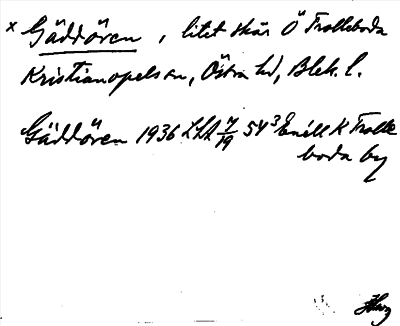 x Gäddören, litet skär Ö Trolleboda
Kristianopels sn, Östra hd, Blek. l.
Gäddören 1936 LSA 7/19 54³ Enéll K Trolle
boda by